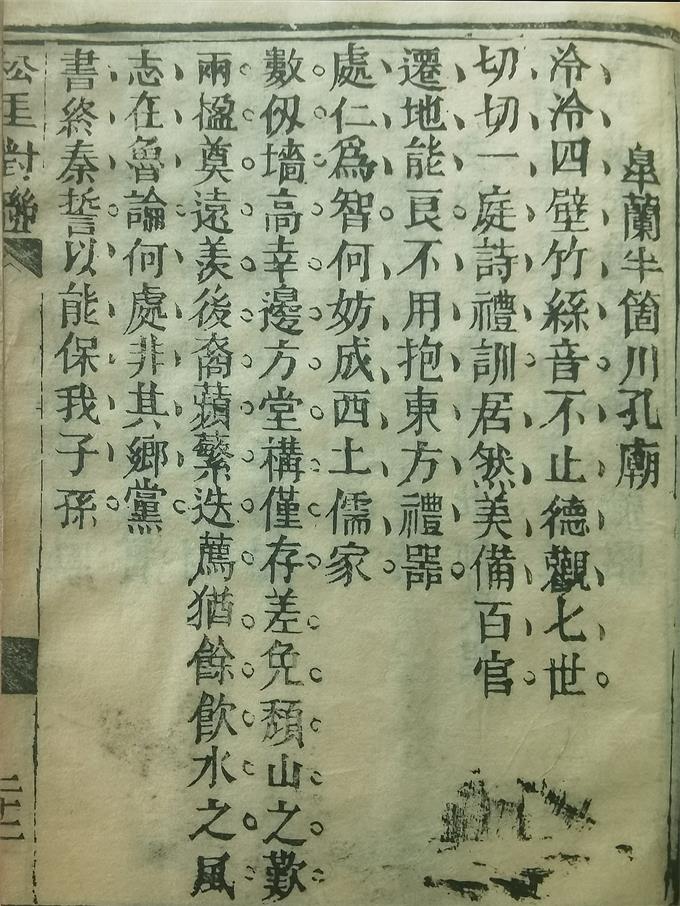 皐蘭半箇川孔廟
冷冷四壁竹絲音不止德觀七世
切切一庭詩禮訓居然美備百官
遷地能良不用抱東方禮器
處仁為智何妨成西土儒家
數仭墻高幸邊方堂構僅存差免頹山之歎
兩楹奠遠羨後裔蘋蘩迭薦猶餘飲水之風
志在魯論何處非其鄉黨
書終秦誓以能保我子孫
松厓對聯
二十二